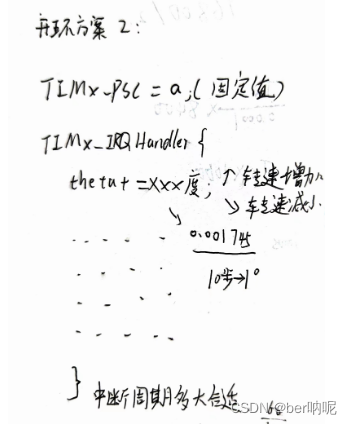 开环方案2:
TIMx_PSC = a;(固定值)
TIMx_IRQHandler{
thetat +=XXX度; ↑转速增加
↘转速减小
0.001745
10步→1°
} 中断周期多大合适
CSDN @ber呐呢